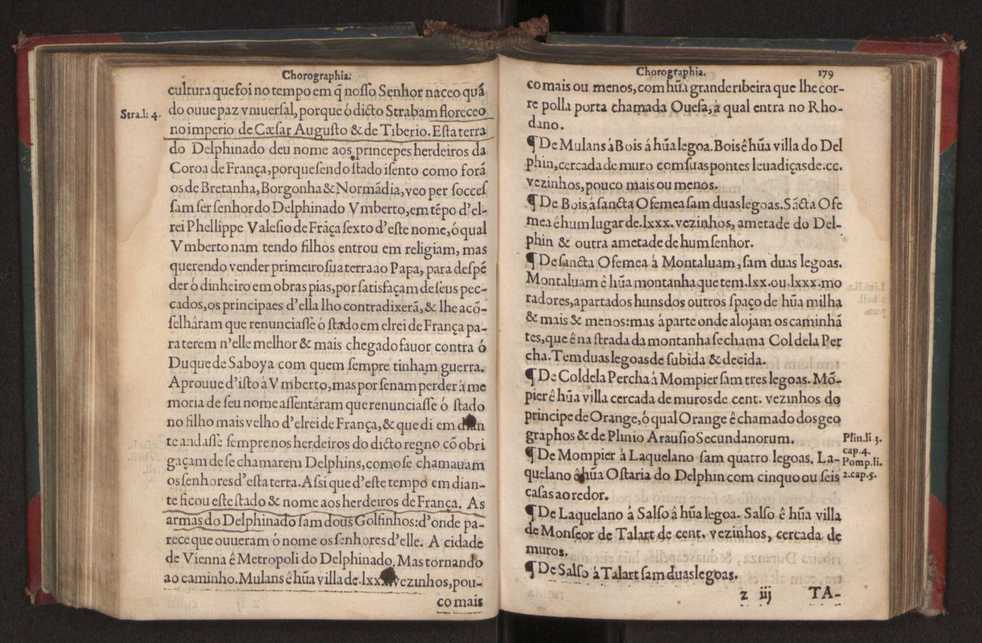 Chorographia.
cultura que foi no tempo em q̃ nosso Senhor naceo quã
Stra.li 4.
do ouue paz vniuersal, porque ó dicto Strabam floreceo
no imperio de Cæsar Augusto & de Tiberio. Esta terra
do Delphinado deu nome aos princepes herdeiros da
Coroa de França, porque sendo stado isento como forã
os de Bretanha, Borgonha & Normãdia, veo per socces
sam ser senhor do Delphinado Vmberto, em tẽpo d'el-
rei Phellippe Valesio de Frãça sexto d'este nome, ó qual
Vmberto nam tendo filhos entrou em religiam, mas
querendo vender primeiro sua terra ao Papa, para despẽ
der ó dinheiro em obras pias, por satisfaçam de seus pec-
cados, os principaes d'ella lho contradixerã, & lhe acõ-
selháram que renunciasse ó stado em elrei de França pa-
ra terem n'elle melhor & mais chegado fauor contra ó
Duque de Saboya com quem sempre tinham guerra.
Aprouue d'isto à Vmberto, mas por senam perder à me
moria de seu nome assentáram que renunciasse ó stado
no filho mais velho d'elrei de França, & que di em dian
te andasse sempre nos herdeiros do dicto regno cõ obri
gaçam de se chamarem Delphins, como se chamauam
os senhores d'esta terra. Assi que d'este tempo em dian-
te ficou este stado & nome aos herdeiros de França. As
armas do Delphinado sam dous Golfinhos: d'onde pa-
rece que ouueram ó nome os senhores d'elle. A cidade
de Vienna ê Metropoli do Delphinado. Mas tornando
ao caminho. Mulans ê hũa villa de. vezinhos, pou-
co mais
Chorographia. 179
co mais ou menos, com hũa grande ribeira que lhe cor-
re polla porta chamada Ouesa, à qual entra no Rho-
dano.
¶ De Mulans à Bois á hũa legoa. Bois ê hũa villa do Del
phin, cercada de muro com suas pontes leuadiças de.cc.
vezinhos, pouco mais ou menos.
¶ De Bois à sancta Ofemea sam duas legoas. Sãcta Ofe
mea ê hum lugar de.lxxx. vezinhos, ametade do Del-
phin & outra ametade de hum senhor.
¶ De sancta Ofemea à Montaluam, sam duas legoas.
Montaluam ê hũa montanha que tem.lxx.ou.lxxx.mo
radores, apartados huns dos outros spaço de hũa milha
& mais & menos: mas á parte onde alojam os caminhã
tes, que ê na strada da montanha se chama Col dela Per
cha. Tem duas legoas de subida & decida.
¶ De Col dela Percha à Mompier sam tres legoas. Mõ-
pier ê hũa villa cercada de muros de cent. vezinhos do
principe de Orange, ó qual Orange ê chamado dos geo
graphos & de Plunio Arausio Secundanorum.
Plin.li 3.
cap.4.
¶ De Mompier à Laquelano sam quatro legoas. La-
Pomp.li.
quelano ê hũa Ostaria do Delphin com cinquo ou seis
2.cap.5.
casas ao redor.
¶ De Laquelano à Salso á hũa legoa. Salso ê hũa villa
de Monseor de Talart de cent. vezinhos, cercada de
muros.
¶ De Salso à Talart sam duas legoas.
z iij TA-